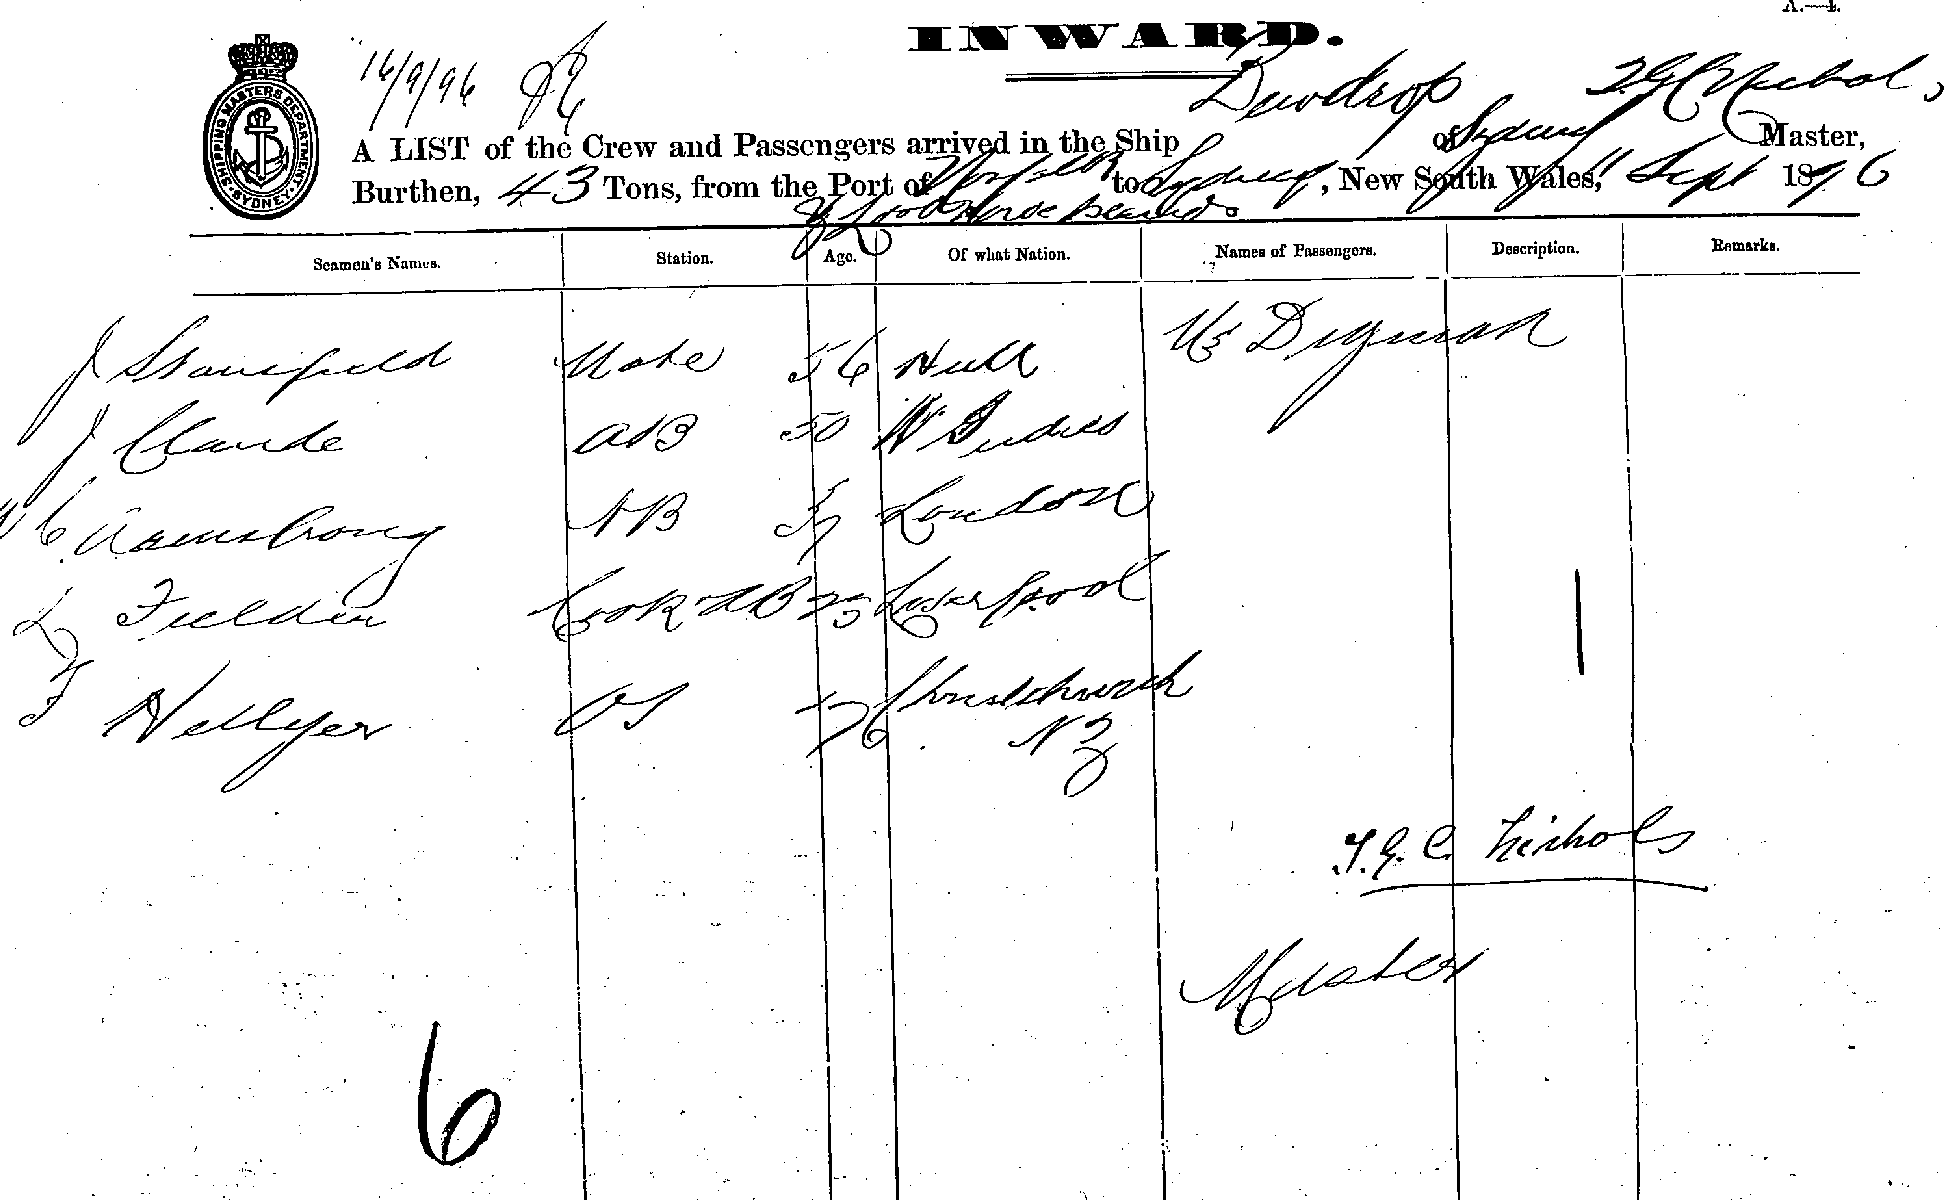 A.—4.
INWARD.
16/9/96
SHIPPING MASTERS DEPARTMENT
SYDNEY
A LIST of the Crew and Passengers arrived in the Ship Dewdrop of Sydney T G C Nichols, Master,
Burthen, 43 Tons, from the Port of Norfolk to Sydney, New South Wales, Sept 1896
& Lord Howe Islands
Seamen's Names. Station. Age. Of what Nation. Names of Passengers. Description. Remarks.
J Stansfield Mate 56 Hull Digman
J Claude AB 50 W Indies
W C Armstrong AB London
L Fielder Cook AB 25 Liverpool
F Hellyer OS Christchurch
NZ
T. G. C. Nichols
Master
6